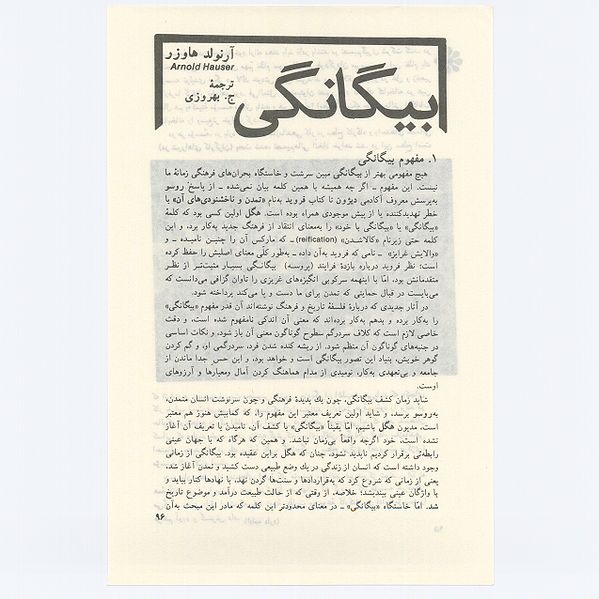 آرنولد هاوزر
Arnold Hauser
ترجمهٔ
ج. بهروزی
بیگانگی
۱. مفهوم بیگانگی
هیچ مفهومی بهتر از بیگانگی مبین سرشت و خاستگاه بحران‌های فرهنگی زمانهٔ ما
نیست. این مفهوم ـ اگر چه همیشه با همین کلمه بیان نمی‌شده ـ از پاسخ روسو
به‌پرسش معروف آکادمی دیژون تا کتاب فروید به‌نام «تمدن و ناخشنودی‌های آن» با
خطر تهدیدکننده یا از پیش موجودی همراه بوده است. هگل اولین کسی بود که کلمهٔ
«بیگانگی» یا «بیگانگی با خود» را به‌معنای انتقاد از فرهنگ جدید به‌کار برد، و این
کلمه حتی زیرنام «کالاشدن» (reification) ـ که مارکس آن را چنین نامیده ـ و
«والایش غرایز» ـ نامی که فروید به‌آن داده ـ به‌طور کلی معنای اصلیش را حفظ کرده
است؛ نظر فروید درباره بازدهٔ فرایند (پروسه) بیگانگی بسیار مثبت‌تر از نظر
متقدمانش بود، امّا با اینهمه سرکوبی انگیزه‌های غریزی را تاوان گزافی می‌دانست که
می‌بایست در قبال حمایتی که تمدن برای ما دست و پا می‌کند پرداخته شود.
در آثار جدیدی که دربارهٔ فلسفهٔ تاریخ و فرهنگ نوشته‌اند آن قدر مفهوم «بیگانگی»
را به‌کار برده و بدهم به‌کار برده‌اند که معنی آن اندکی نامفهوم شده است، و دقت
خاصی لازم است که کلاف سردرگم سطوح گوناگون معنی آن باز شود، و نکات اساسی
در جنبه‌های گوناگون آن منظم شود. از ریشه کنده شدن فرد، سردرگمی او، و گم کردن
گوهر خویش، بنیاد این تصور بیگانگی است و خواهد بود، و این حس جدا ماندن از
جامعه و بی‌تعهدی به‌کار، نومیدی از مدام هماهنگ کردن آمال ومعیارها و آرزوهای
اوست.
شاید زمان کشف بیگانگی، چون یك پدیدهٔ فرهنگی و چون سرنوشت انسان متمدن،
به‌روسو برسد، و شاید اولین تعریف معتبر این مفهوم را، که کمابیش هنوز هم معتبر
است، مدیون هگل باشیم، امّا یقیناً «بیگانگی» با کشف آن، نامیدن یا تعریف آن آغاز
نشده است. خود اگرچه واقعاً بی‌زمان نباشد. و همین که هرگاه که با جهان عینی
رابطه‌ئی برقرار کردیم ناپدید نشود، چنان که هگل براین عقیده بود. بیگانگی از زمانی
وجود داشته است که انسان از زندگی در یك وضع طبیعی دست کشید و تمدن آغاز شد،
یعنی از زمانی که شروع کرد که به‌قراردادها و سنت‌ها گردن نهد، با نهادها کنار بیاید و
با واژگان عینی بیندیشد؛ خلاصه، از وقتی که از حالت طبیعت درآمد و موضوع تاریخ
شد. امّا خاستگاه «بیگانگی» ـ در معنای محدودتر این کلمه که مادر این مبحث به‌آن
۹۶